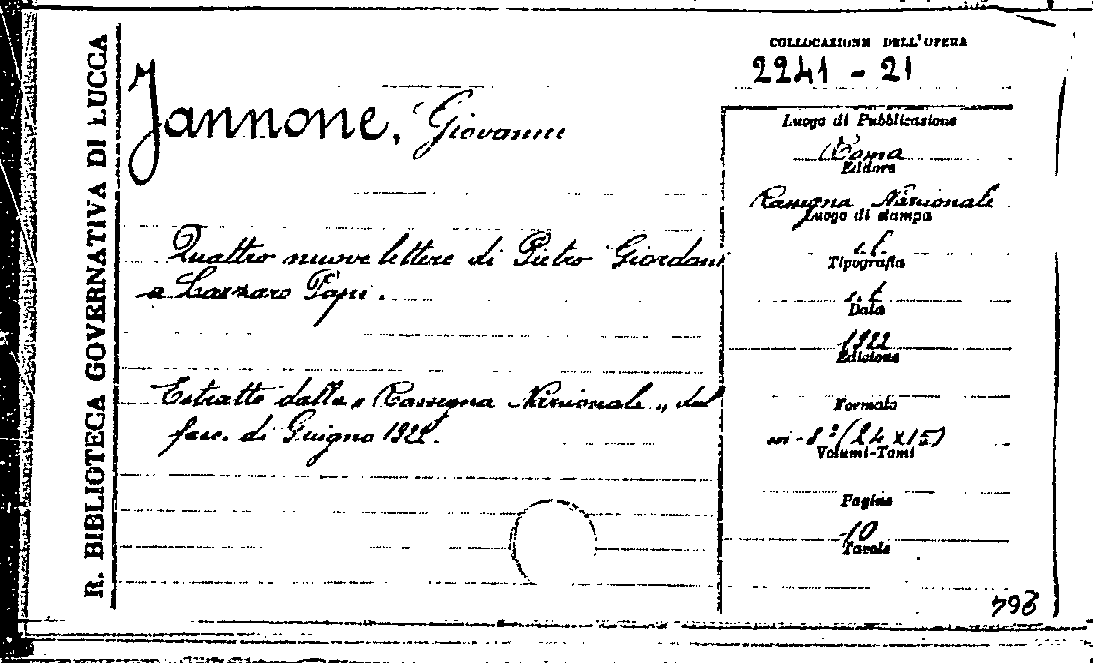 R. BIBLIOTECA GOVERNATIVA DI LUCCA
Jannone, Giovanni
Quattro nuove lettere di Pietro Giordani
a Lazzaro Papi.
Estratto dalla „Rassegna Nazionale„ del
fasc. di Giugno 1922.
COLLOCAZIONE DELL'OPERA
2241 - 21
Luogo di Pubblicazione
Roma
Editore
Rassegna Nazionale
Luogo di stampa
Tipografia
s.t.
Data
1922
Edizione
Formato
in-8º (24 x 15)
Volumi-Tomi
Pagine
10
Tavole